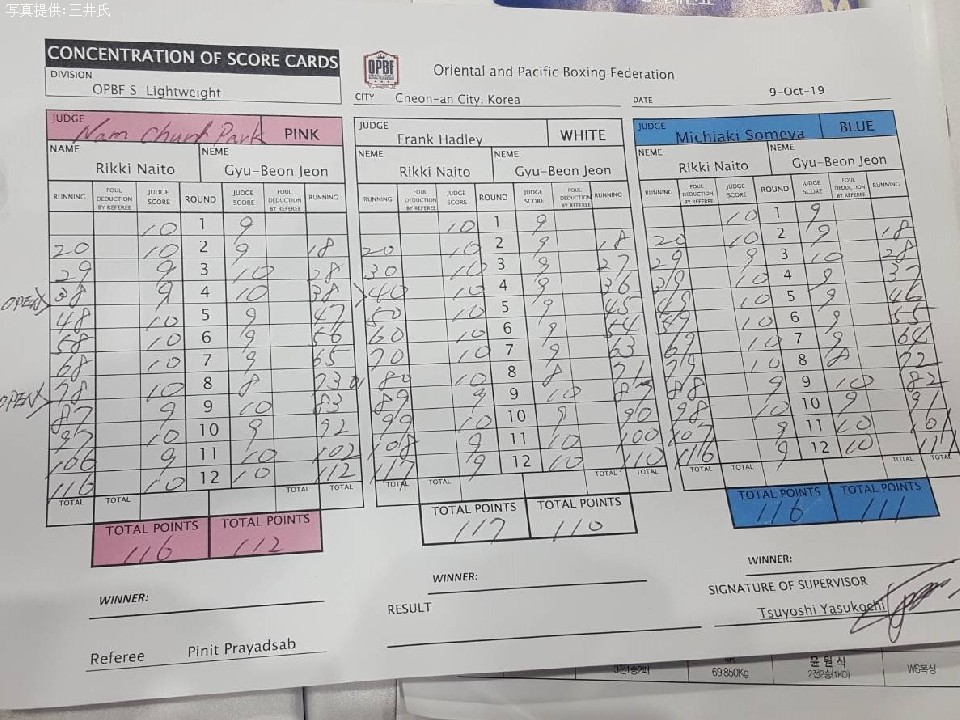 写真提供:三井氏
CONCENTRATION OF SCORE CARDS
DIVISION
OPBF S Lightweight
OPBF
Oriental and Pacific Boxing Federation
CITY Cheon-an City, Korea
DATE 9-Oct-19
JUDGE Nam Chunk Park PINK
JUDGE Frank Hadley WHITE
JUDGE Michiaki Someya BLUE
NAME Rikki Naito NEME Gyu-Beon Jeon
NEME Rikki Naito NEME Gyu-Beon Jeon
NEME Rikki Naito NEME Gyu-Beon Jeon
RUNNING FOUL DEDUCTION BY REFEREE JUDGE SCORE ROUND JUDGE SCORE FOUL DEDUCTION BY REFEREE RUNNING
RUNNING FOUL DEDUCTION BY REFEREE JUDGE SCORE ROUND JUDGE SCORE FOUL DEDUCTION BY REFEREE RUNNING
RUNNING FOUL DEDUCTION BY REFEREE JUDGE SCORE ROUND JUDGE SCORE FOUL DEDUCTION BY REFEREE RUNNING
10 1 9 10 1 9 10 1 9
20 10 2 9 18 20 10 2 9 18 20 10 2 9 18
29 9 3 10 28 30 10 3 9 27 29 9 3 10 28
OPEN 38 9 4 10 38 40 10 4 9 36 39 10 4 9 37
48 10 5 9 47 50 10 5 9 45 49 10 5 9 46
58 10 6 9 56 60 10 6 9 54 59 10 6 9 55
68 10 7 9 65 70 10 7 9 63 69 10 7 9 64
OPEN 78 10 8 8 73 80 10 8 8 71 79 10 8 8 72
87 9 9 10 83 89 9 9 10 88 9 9 10 82
97 10 10 9 92 99 10 10 9 90 98 10 10 9 91
106 9 11 10 102 108 9 11 10 100 107 9 11 10 101
116 10 12 10 112 117 9 12 10 110 116 9 12 10 111
TOTAL TOTAL TOTAL TOTAL TOTAL TOTAL TOTAL TOTAL TOTAL TOTAL TOTAL TOTAL
TOTAL POINTS TOTAL POINTS TOTAL POINTS TOTAL POINTS TOTAL POINTS TOTAL POINTS
116 112 117 110 116 111
WINNER:
WINNER:
WINNER:
RESULT
SIGNATURE OF SUPERVISOR
Tsuyoshi Yasukochi
Referee Pinit Prayadsab
69.860Kg
윤원식
2전2승(1KO)
W5복싱